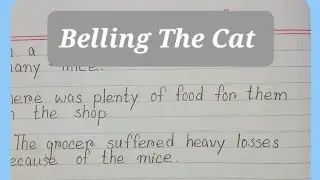 Belling The Cat
a
mice.
was plenty of food for them
the shop
The grocer suffered heavy losses
of the mice.